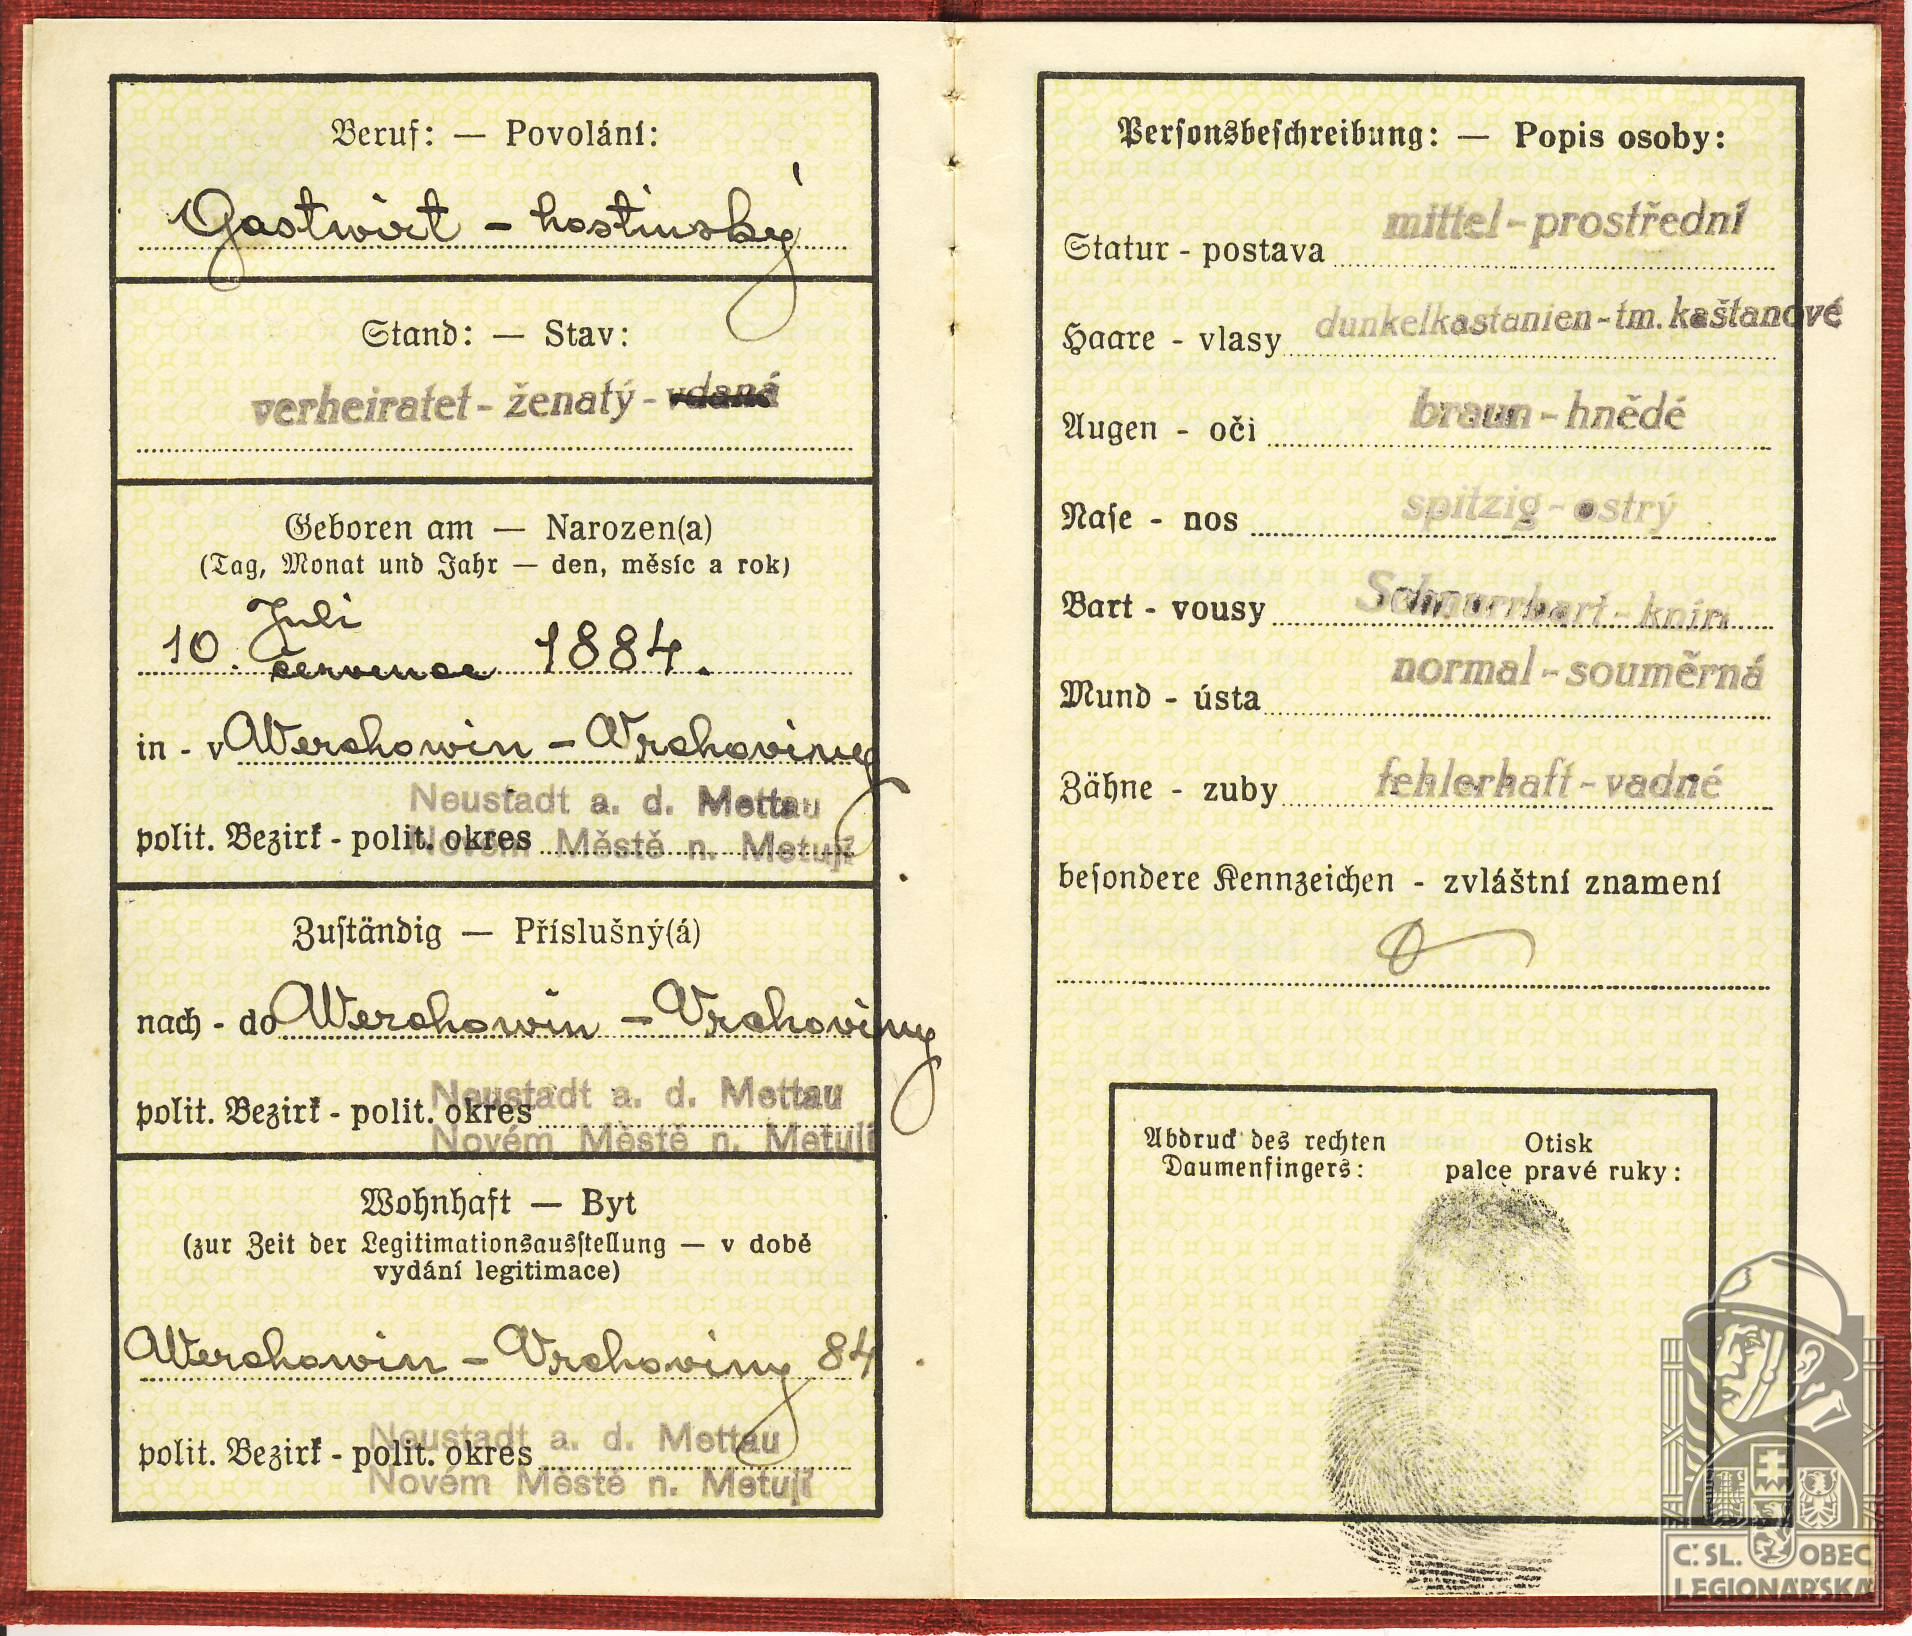 Beruf: — Povolání:
Gastwirt – hostinský
Stand: — Stav:
verheiratet - ženatý - vdaná
Geboren am — Narozen(a)
(Tag, Monat und Jahr — den, měsíc a rok)
Juli
10. července 1884.
in - v Werchowin – Vrchoviny
Neustadt a. d. Mettau
polit. Bezirk - polit. okres Novém Městě n. Metují
Zuständig — Příslušný(á)
nach - do Werchowin – Vrchoviny
Neustadt a. d. Mettau
polit. Bezirk - polit. okres
Novém Městě n. Metují
Wohnhaft — Byt
(zur Zeit der Legitimationsausstellung — v době
vydání legitimace)
Werchowin – Vrchoviny 84
Neustadt a. d. Mettau
polit. Bezirk - polit. okres
Novém Městě n. Metují
Personsbeschreibung: — Popis osoby:
Statur - postava mittel - prostřední
Haare - vlasy dunkelkastanien - tm. kaštanové
Augen - oči braun - hnědé
Nase - nos spitzig - ostrý
Bart - vousy Schnurrbart - knír
Mund - ústa normal - souměrná
Zähne - zuby fehlerhaft - vadné
besondere Kennzeichen - zvláštní znamení
Abdruck des rechten
Daumenfingers:
Otisk
palce pravé ruky:
Č. SL. OBEC
LEGIONÁŘSKÁ